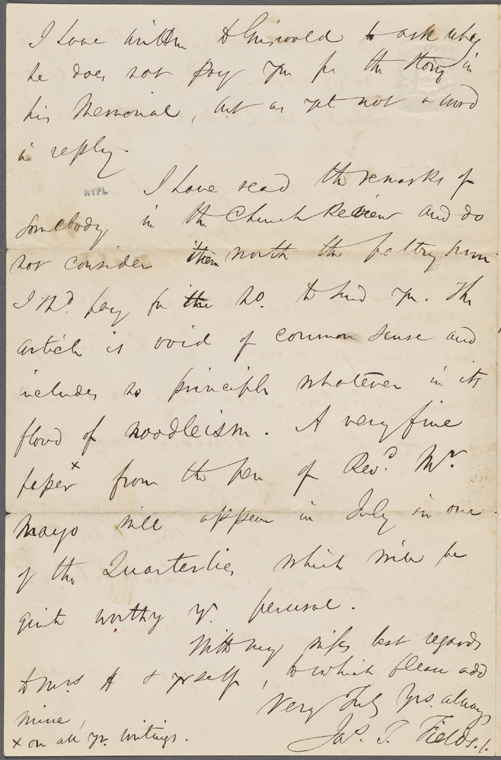 I have written to Griswold to ask why
he does not pay you for the story in
his Memorial, but as yet not a word
in reply.
NYPL
I have read the remarks of
somebody in the Church Review and do
not consider them worth the paltry sum
I shd pay for the no. to send you. The
article is void of common sense and
includes no principle whatever in its
flood of noodleism. A very fine
paper x from the pen of Revd. Mr.
Mayo will appear in July in one
of the Quarterlies which will be
quite worthy yr. perusal.
With my wife's best regards
to Mrs H & yrself, to which please add
mine,
Very truly yrs. always
Jas. T. Fields.
x on all yr. writings.